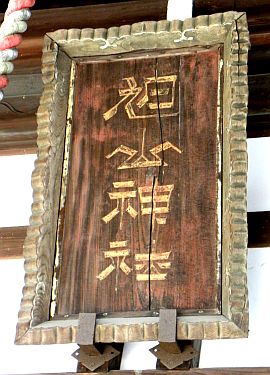 旭山神社